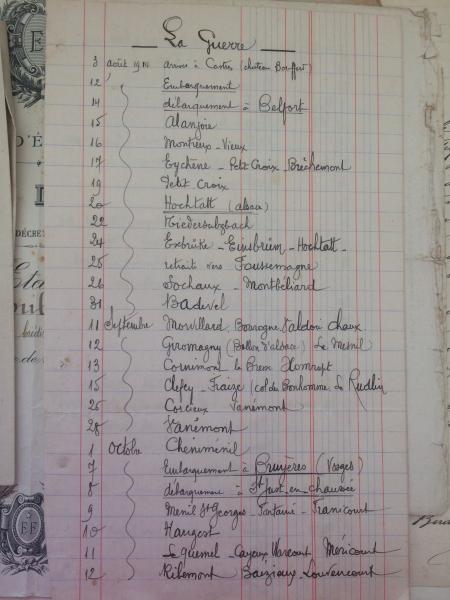 La Guerre
3 août 1914 arrivée à Castres (château Bouffort)
12 Embarquement
14 débarquement à Belfort
15 Alanjoie
16 Montreux-Vieux
17 Eychêne - Petit Croix Bréchemont
19 Petit Croix
20 Hochtatt (alsace)
22 Niedersulzbach
24 Exbrüke - Einsbrünn - Hochtatt -
25 retraite vers Foussemagne
26 Sochaux - Montbéliard
31 Badevel
11 Septembre Morvillard, Bourogne, Valdoie Chaux
12 Giromagny (Ballon d'alsace) Le Mesnil
13 Cornimon la Bresse
15 Clefcy - Fraize (col du Bonhomme, Le Rudlin
25 Corcieux Vanémont
28 Vanémont
1 Octobre Cheniménil
7 Embarquement à Bruyères (Vosges)
8 débarquement à St Just en chaussée
9 Menil St Georges - Fontaine - Franicourt
10 Hangest
11 Le quesnel - Cayeux Warcourt Méricourt
12 Ribemont Baizieux - Louvencourt